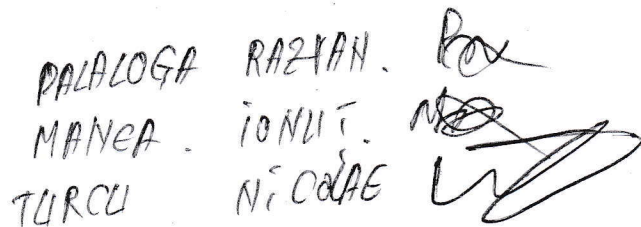 PALALOGA RAZVAN.
MANEA. IONUT.
TURCU NICOLAE